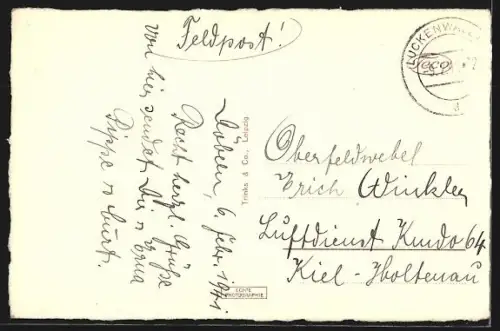 Feldpost!
LUCKENWAL
Döbeln, 6. Febr. 1941.
Recht herzl. Grüße
von hier sendet Dir u. Erna
Pippe u. Curt.
Trinks & Co., Leipzig
ECHTE
PHOTOGRAPHIE
Oberfeldwebel
Erich Winkler
Luftdienst Kmdo 64
Kiel-Holtenau